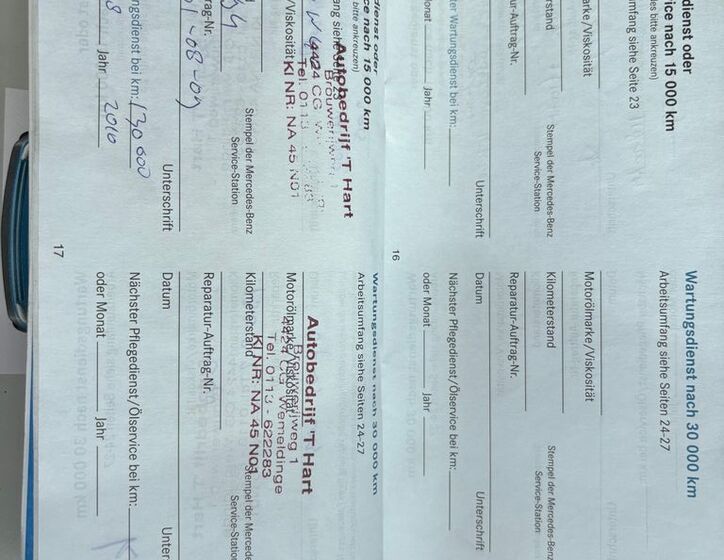 dienst oder
ice nach 15 000 km
es bitte ankreuzen)
umfang siehe Seite 23
arke/Viskosität
erstand
Stempel der Mercedes-Benz
Service-Station
atur-Auftrag-Nr.
Unterschrift
ter Wartungsdienst bei km:
Monat Jahr
16
Wartungsdienst nach 30 000 km
Arbeitsumfang siehe Seiten 24-27
Motorölmarke/Viskosität
Kilometerstand
Stempel der Mercedes-Benz
Service-Station
Reparatur-Auftrag-Nr.
Datum
Unterschrift
Nächster Pflegedienst/Ölservice bei km:
oder Monat Jahr
dienst oder
ice nach 15 000 km
bitte ankreuzen)
ang siehe Seite 23
Autobedrijf 'T Hart
Brouwerijweg 1
4424 CG W
Tel. 0113
KI NR: NA 45 N01
/Viskosität
Stempel der Mercedes-Benz
Service-Station
ftrag-Nr.
-08-09
Unterschrift
ngsdienst bei km: 130 600
Jahr 2010
17
Wartungsdienst nach 30 000 km
Arbeitsumfang siehe Seiten 24-27
Autobedrijf 'T Hart
Brouwerijweg 1
Motorölmarke/Viskosität
4424 CG Wemeldinge
Tel. 0113 - 622283
KI NR: NA 45 N01
Kilometerstand
Stempel der Mercedes-Benz
Service-Station
Reparatur-Auftrag-Nr.
Datum
Unter
Nächster Pflegedienst/Ölservice bei km:
oder Monat Jahr